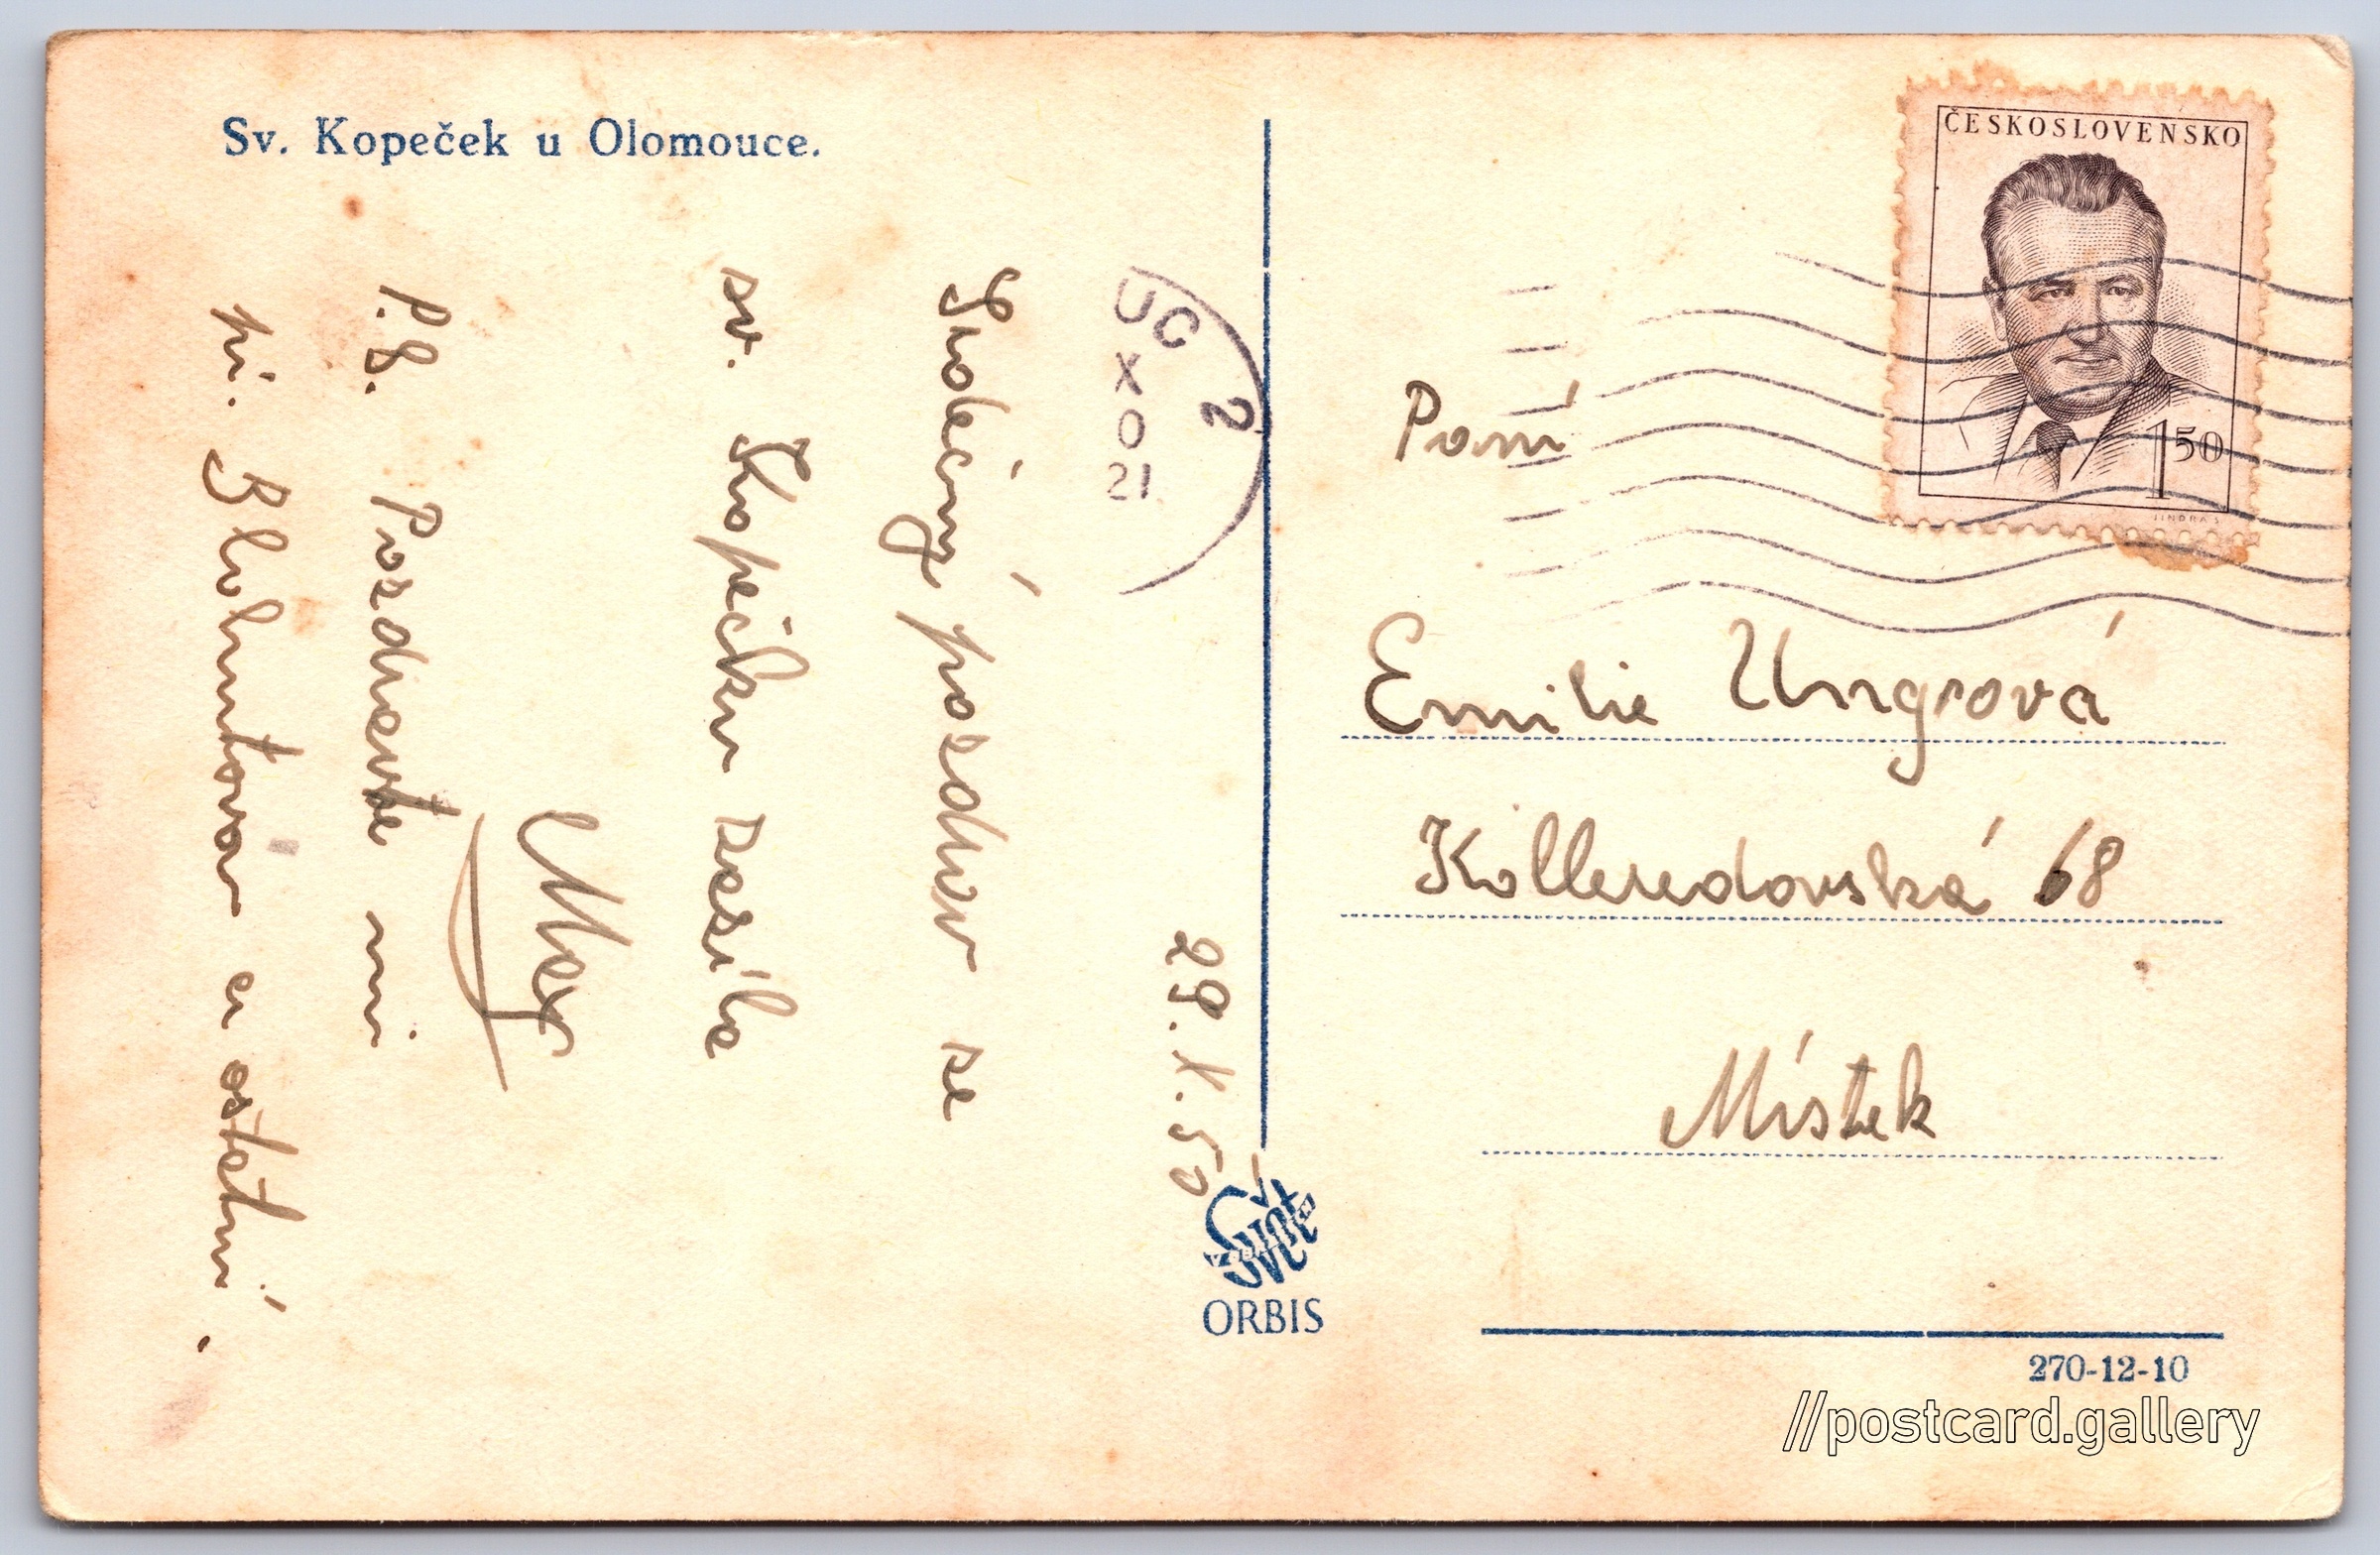 Sv. Kopeček u Olomouce.
29. X. 50
Srdečný pozdrav se
sv. Kopečku zasílá
Max
P.S. Pozdravte mi
pí. a ostatní.
UC 2
X
0
21
ČESKOSLOVENSKO
1 50
JINDRA
Paní
Emilie Ungrová
Kolleredovská 68
Místek
ORBIS
270-12-10
//postcard.gallery